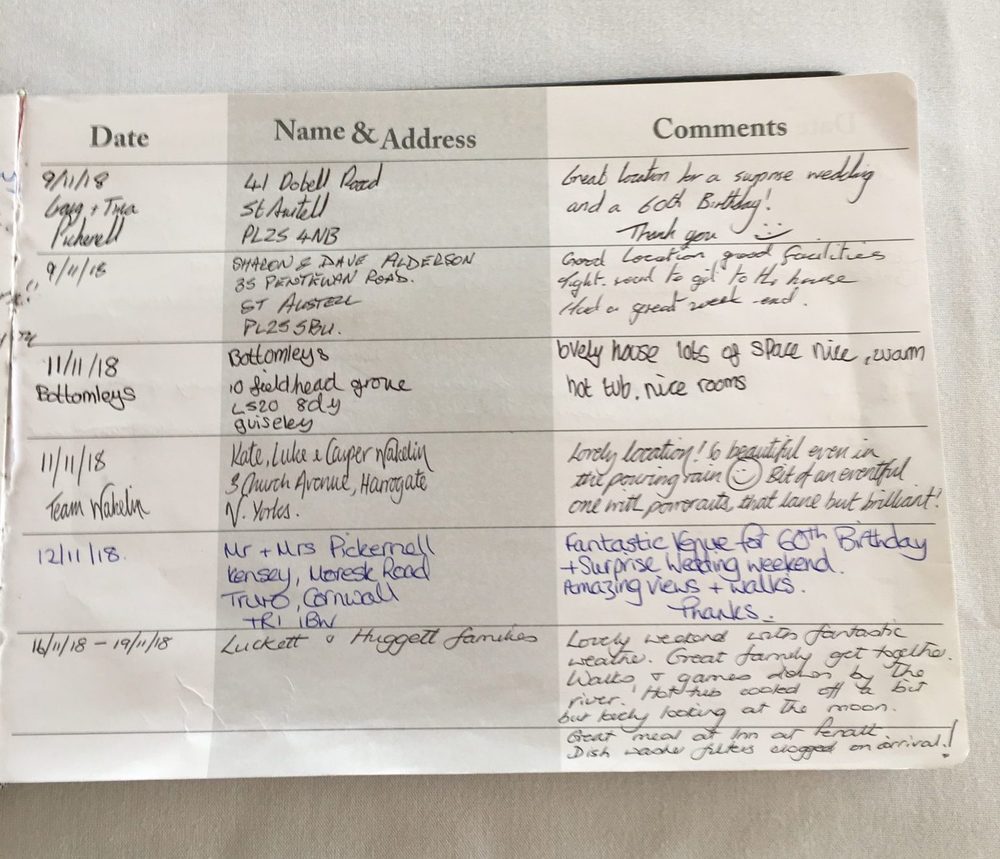 Date Name & Address Comments
9/11/18 41 Dobell Road Great location for a suprise wedding
Craig + Tina St Austell and a 60th Birthday!
Pickernell PL25 4NB Thank you
9/11/18 SHARON & DAVE ALDERSON Good Location good facilities
35 PENTEWAN ROAD. tight road to get to the house
ST AUSTELL Had a great week-end.
PL25 5BU.
11/11/18 Bottomleys lovely house lots of space nice, warm
Bottomleys 10 fieldhead grove hot tub, nice rooms
LS20 8dy
guiseley
11/11/18 Kate, Luke & Casper Wakelin Lovely location! So beautiful even in
3 Church Avenue, Harrogate the pouring rain Bit of an eventful
Team Wakelin N. Yorks. one with powercuts, that lane but brilliant!
12/11/18. Mr + Mrs Pickernell Fantastic Venue for 60th Birthday
Kensey, Moresk Road + Surprise Wedding weekend.
Truro, Cornwall Amazing views + walks.
TR1 1BW Thanks.
16/11/18 - 19/11/18 Luckett & Huggett families Lovely weekend with fantastic
weather. Great family get together.
Walks & games down by the
river. Hot tub cooled off a bit
but lovely looking at the moon.
Great meal at Inn at Penall
Dish washer filters clogged on arrival!